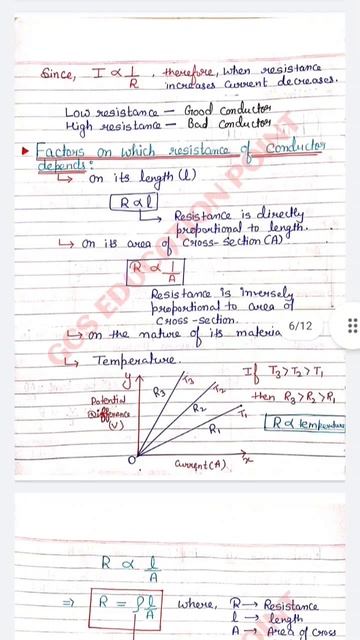 Since, I ∝ 1/R, therefore, when resistance
increases current decreases.
Low resistance — Good conductor
High resistance — Bad conductor
▸ Factors on which resistance of conductor
depends:
↳ on its length (l)
R ∝ l
↳ Resistance is directly
proportional to length.
↳ on its area of cross-section (A)
R ∝ 1/A
Resistance is inversely
proportional to area of
cross-section.
↳ on the nature of its materia
6/12
↳ Temperature.
y
Potential
Difference
(V)
R3 T3
R2 T2
R1 T1
O
Current (A)
x
If T3 > T2 > T1
then R3 > R2 > R1
R ∝ temperature
GCS EDUCATION POINT
R ∝ l/A
⇒ R = ρl/A where, R → Resistance
l → length
A → Area of cross